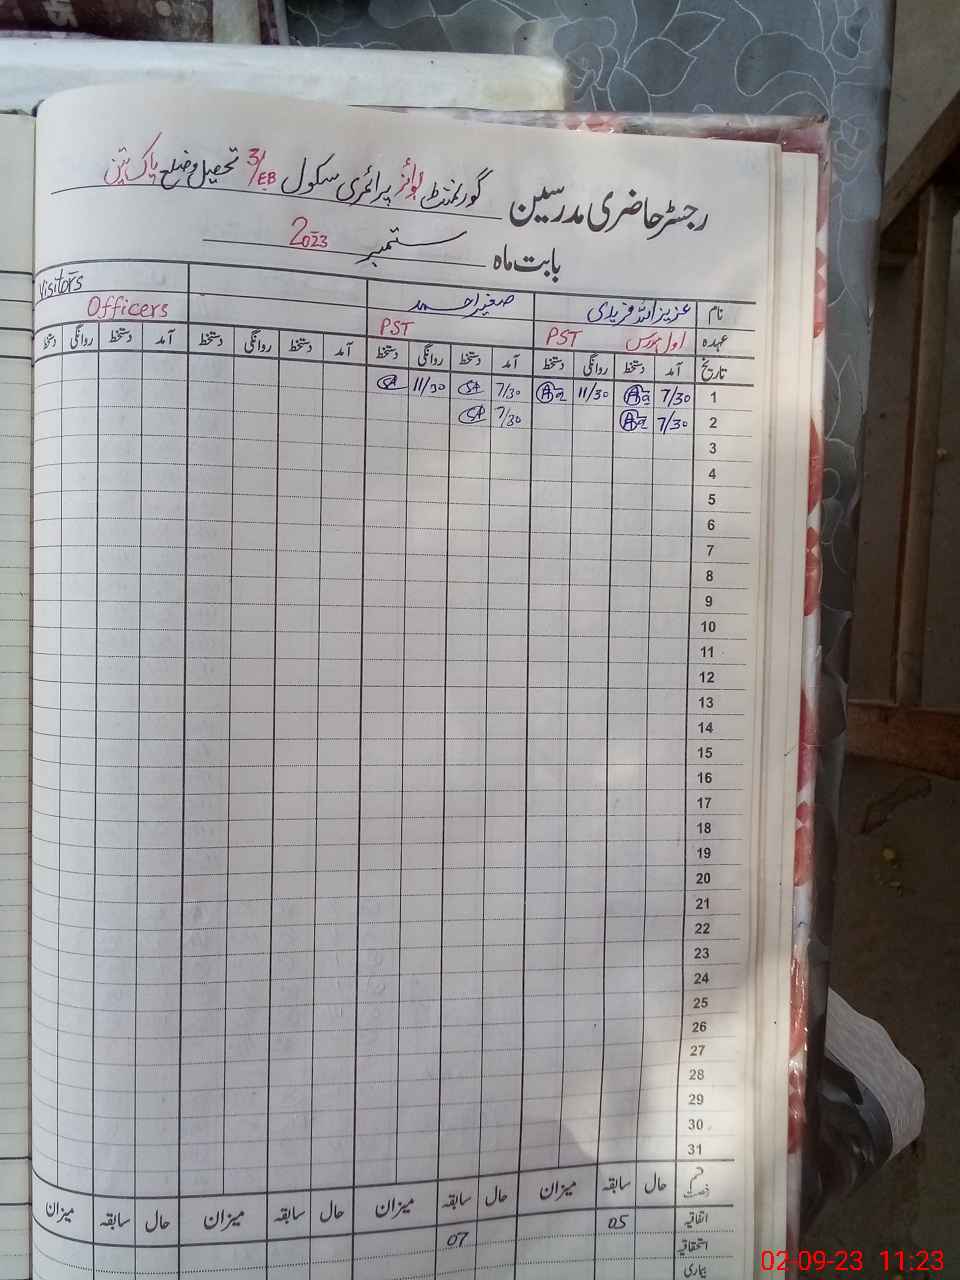 رجسٹر حاضری مدرسین گورنمنٹ بوائز پرائمری سکول 31/EB تحصیل و ضلع پاک پتن
بابت ماہ ستمبر 2023
نام عزیز اللہ فریدی صغیر احمد Visitors
عہدہ اول مدرس PST PST Officers
تاریخ آمد دستخط روانگی دستخط آمد دستخط روانگی دستخط آمد دستخط روانگی دستخط آمد دستخط روانگی دستخط
1 7/30 11/30 7/30 SA 11/30 SA
2 7/30 7/30 SA
3
4
5
6
7
8
9
10
11
12
13
14
15
16
17
18
19
20
21
22
23
24
25
26
27
28
29
30
31
قسم رخصت حال سابقہ میزان حال سابقہ میزان حال سابقہ میزان حال سابقہ میزان
اتفاقیہ 05 07
استحقاقیہ
بیماری
02-09-23 11:23